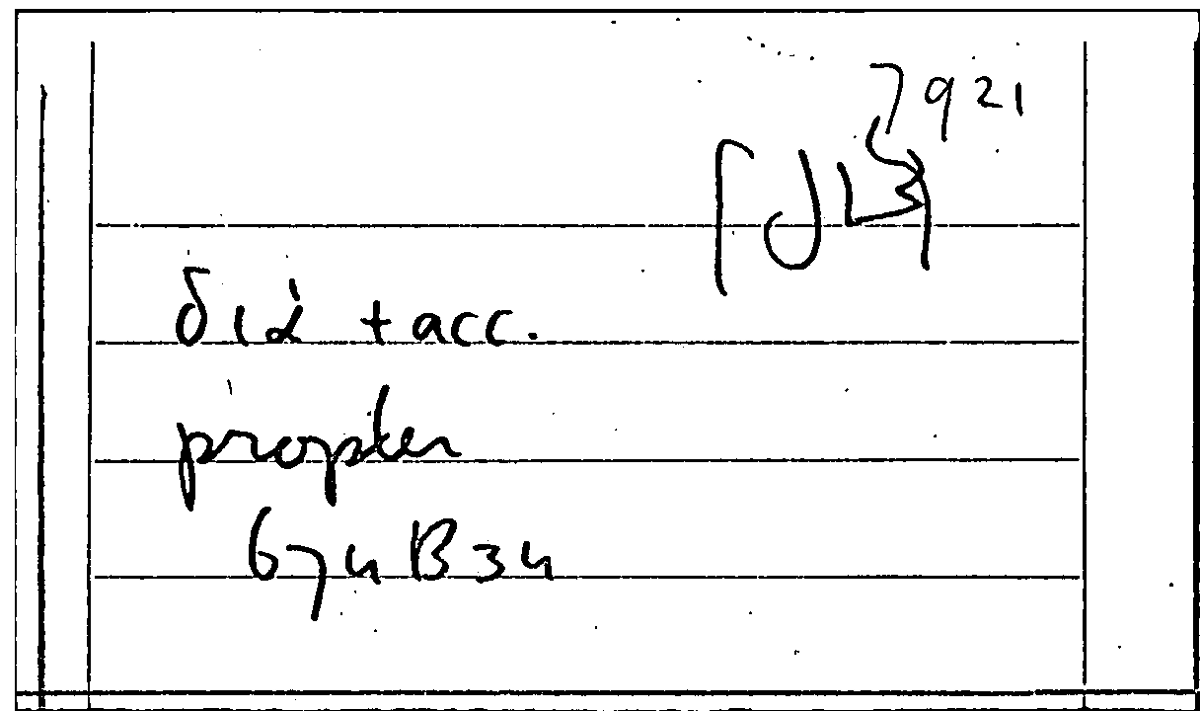 7921
διά + acc.
propter
674B34